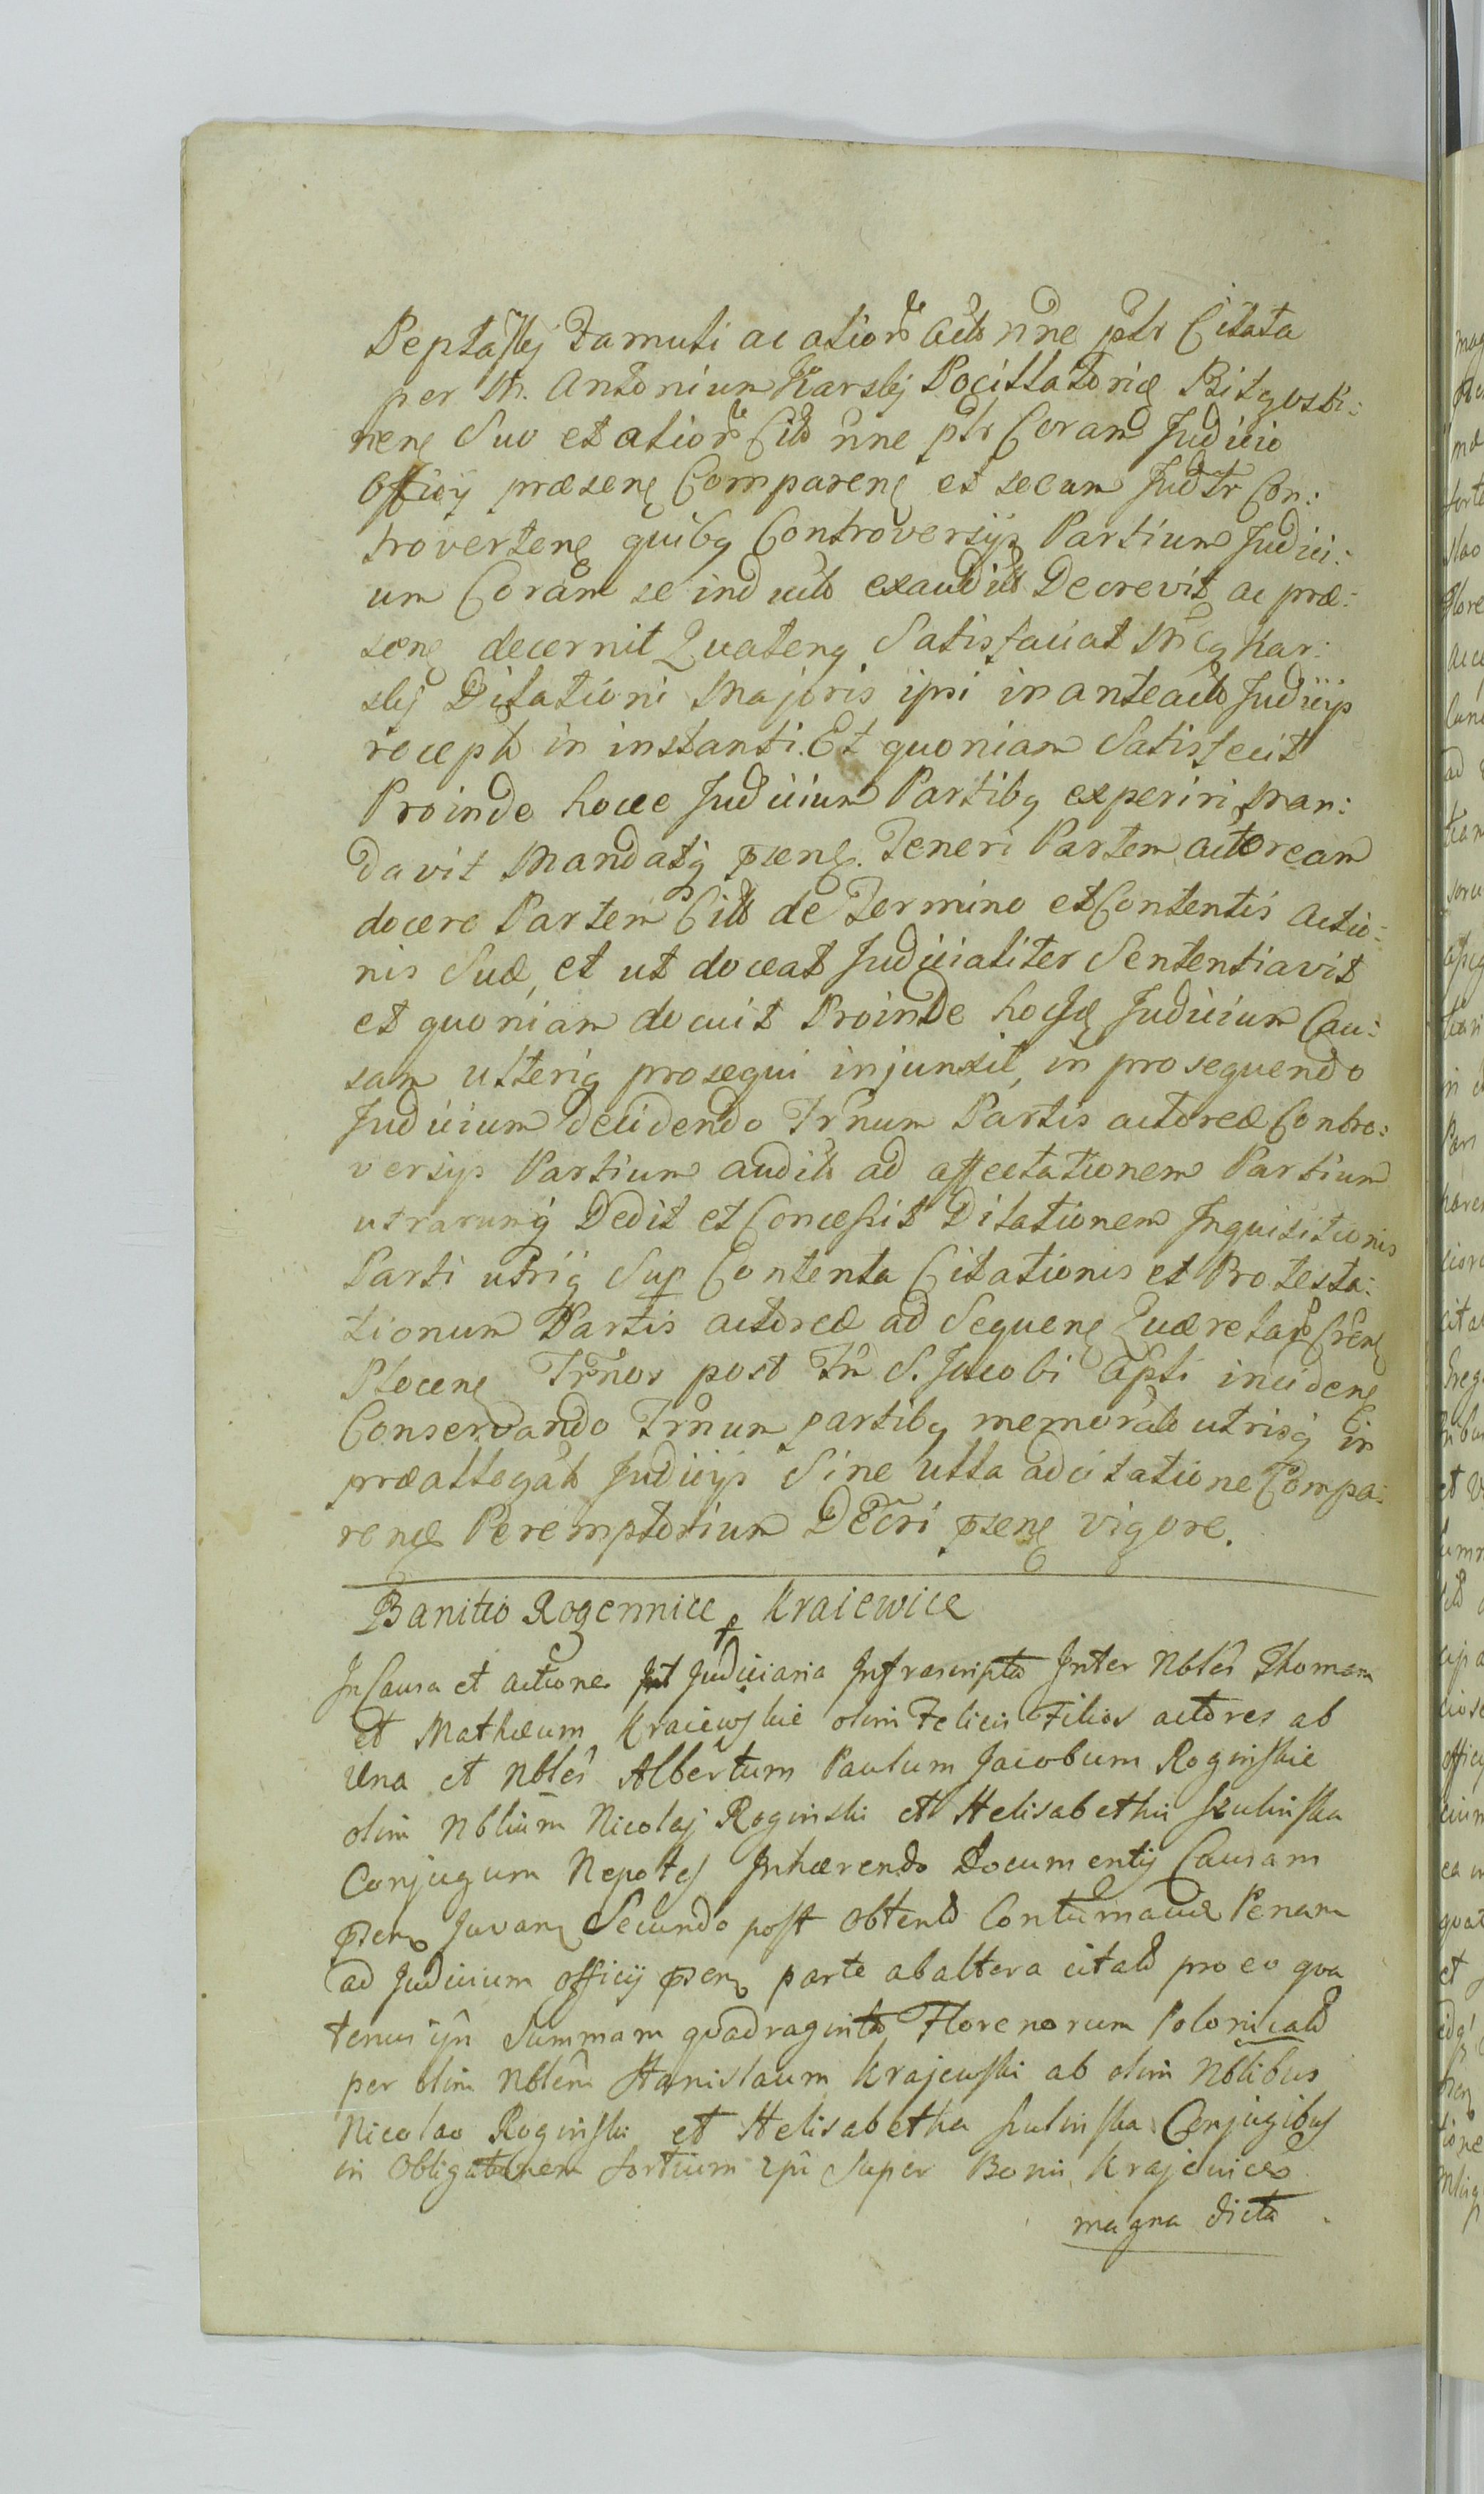 Peptaskj Famuli ac alior Act nne ptr Citata
per M. Antonium Karskj Pocillatoriæ Bitgosti:
nen Suo et alior Cit nne ptr Coram Judicio
Officij præsen Comparen et secum Judtr Con:
troverten quibq Controversijs Partium Judici:
um Coram se induct exaudit Decrevit ac præ:
sen decernit Quatenq Satisfaciat Mcq Kar:
skj Dilationi Majoris ipsi in anteact Judicijs
recept in instanti. Et quoniam Satisfecit
Proinde hocce Judicium Partibq experiri Man:
davit Mandatq præsen. Teneri Partem actoream
docere Partem Cit de Termino et Contentis actio:
nis Suæ, et ut doceat Judicialiter Sententiavit
et quoniam docuit Proinde hocce Judicium Cau:
sam ulteriq prosequi injunxit, in prosequendo
Judicium decidendo Trnum Partis actoreæ Contro:
versijs Partium audit ad affectationem Partium
utrarumq Dedit et Concessit Dilationem Inquisitionis
Parti utriq Sup Contenta Citationis et Protesta:
tionum Partis actoreæ ad Sequen Querelar Cren
Plocen Trnos post Fm S. Jacobi Apli inciden
Conservando Trnum partibq memorat utrisq in
præallegat Judicijs Sine ulla adcitatione Compa:
ren Peremptorium Decri præsen vigore.
Banitio Rogennice Kraiewice
In Causa et actione Judiciaria Infrascripta Inter Nbles Thomam
et Mathæum Kraiewskie olim Felicis Filios actores ab
Una et Nbles Albertum Paulum Jacobum Roginskie
olim Nblium Nicolaj Roginski et Helisabethis Szulinska
Conjugum Nepotes Inhærendo Documentis Causam
præsen Juvan Secundo post obtent Contumaciæ Penam
ad Judicium officij præsen parte ab altera citat pro eo qva
tenus ijn Summam qvadraginta Florenorum Polonicald
per olim Nblem Stanislaum Krajewski ab olim Nblibus
Nicolao Roginski et Helisabetha Szulinska Conjugibus
in Obligationem sortium ipi Super Bonis Krajewice
magna dicta